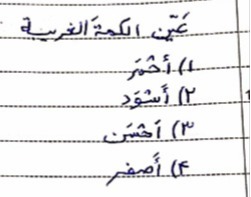 عَيِّن الكلمةَ الغريبة
١) أَحْمَر
٢) أَسْوَد
٣) أَحْسَن
۴) أَصفَر